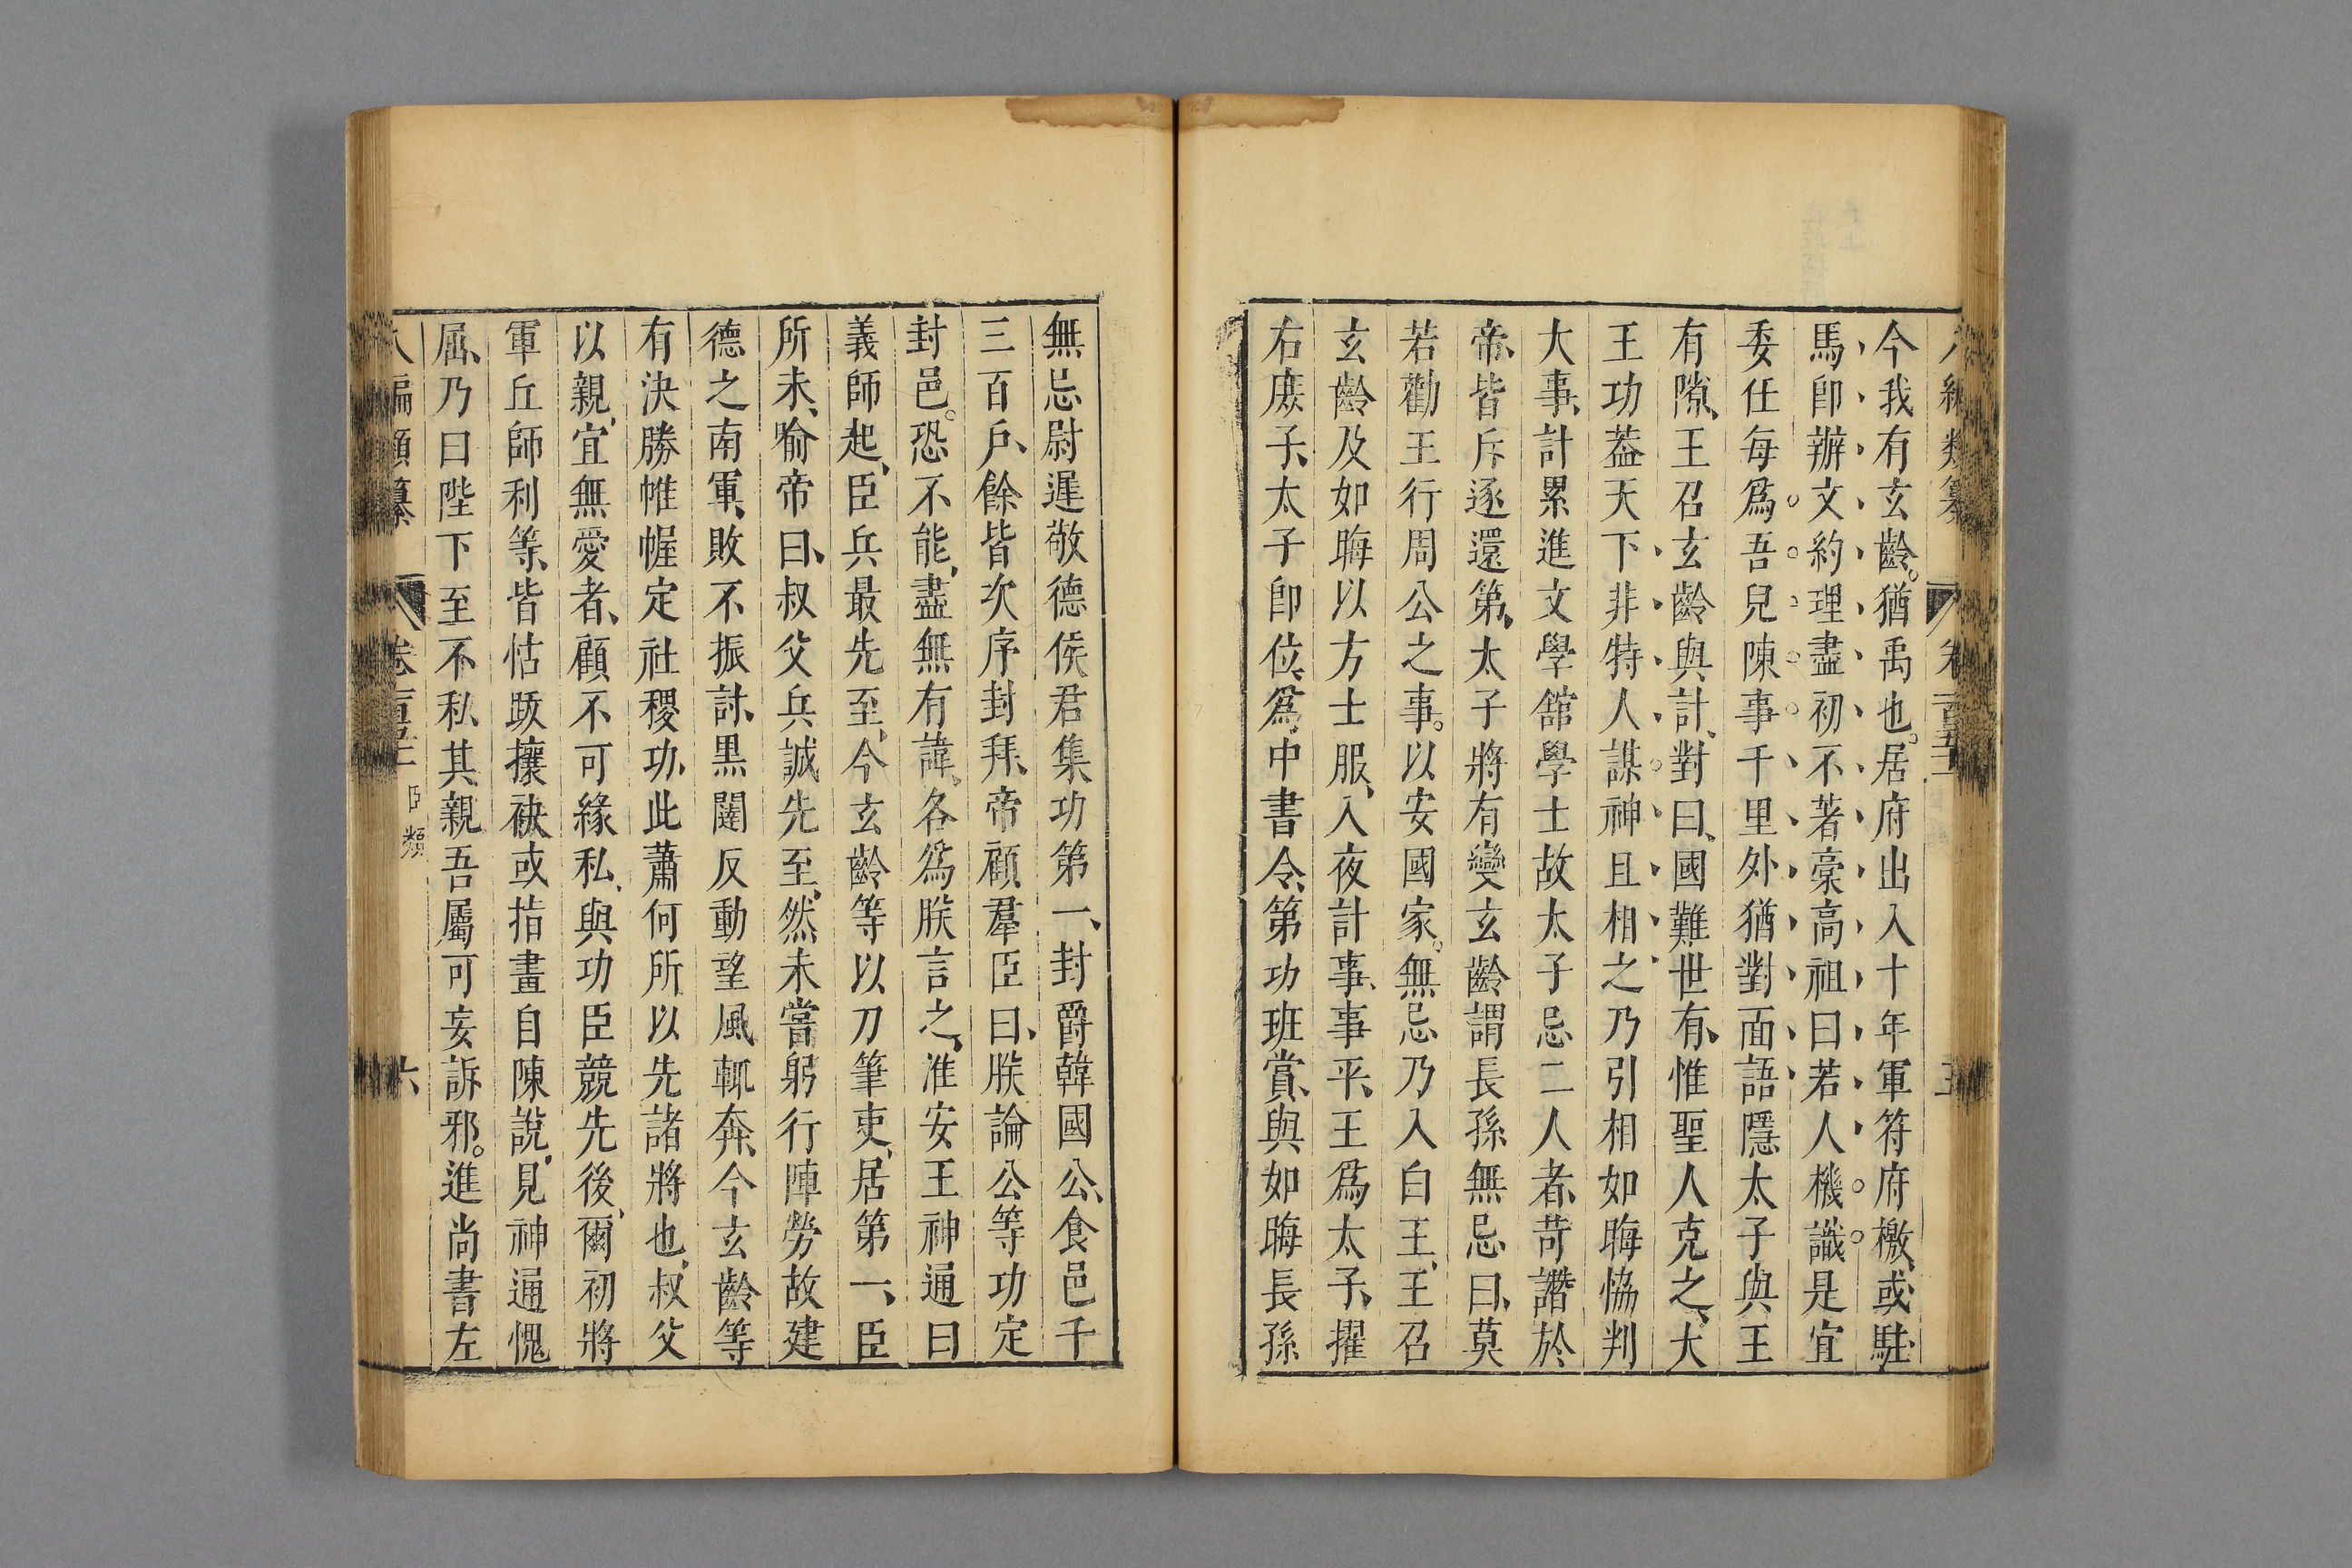 今我有玄齡。猶禹也。居府出入十年軍符府檄、或駐
馬卽辦文約理盡初不著稾高祖曰若人機識是宜
委任每爲吾兒陳事千里外猶對面語隱太子與王
有隙、王召玄齡與計、對曰、國難世有、惟聖人克之、大
王功葢天下非特人謀神且相之乃引相如晦恊判
大事、計累進文學舘學士故太子忌二人者、苛譖於
帝、皆斥逐還第、太子將有變玄齡謂長孫無忌曰、莫
若勸王行周公之事。以安國家。無忌乃入白王、王召
玄齡及如晦以方士服、入夜計事、事平、王爲太子、擢
右庶子、太子卽位、爲中書令、第功班賞、與如晦長孫
無忌尉遲敬德侯君集功第一、封爵韓國公、食邑千
三百戶、餘皆次序封拜、帝顧羣臣曰、朕論公等功定
封邑。恐不能、盡無有諱、各爲朕言之、淮安王神通曰
義師起、臣兵最先至、今玄齡等以刀筆吏、居第一、臣
所未喻、帝曰、叔父兵誠先至、然未嘗躬行陣勞故建
德之南軍、敗不振討、黒闥反動望風輒奔、今玄齡等
有決勝帷幄定社稷功、此蕭何所以先諸將也、叔父
以親、宜無愛者、顧不可緣私、與功臣競先後、爾初將
軍丘師利等、皆怙跋攘袂或指畫自陳說、見神通愧
屈、乃曰陛下至不私其親吾屬可妄訴邪。進尚書左
八編類纂 卷二百五十二 臣類 六